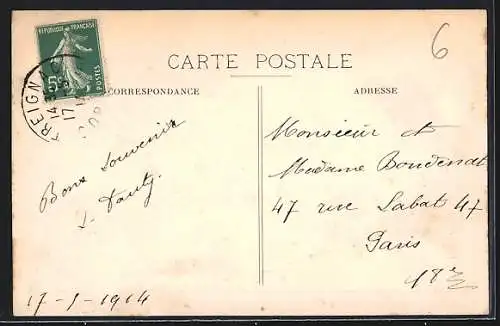 6
REPUBLIQUE FRANÇAISE
5c
POSTES
CARTE POSTALE
CORRESPONDANCE
ADRESSE
FREIGN
14
17
Bons souvenirs
Monsieur et
Madame Boudenat
47 rue Labat 47
Paris
18e
17-9-1914